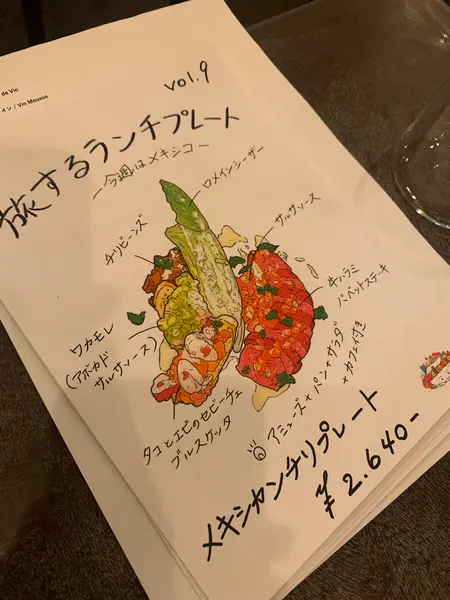 de Vin
イン / Vin Mousse
vol.9
旅するランチプレート
ー今週はメキシコー
ロメインシーザー
チリビーンズ
サルサソース
牛ハラミ
バベットステーキ
ワカモレ
(アボカド
サルサソース)
タコとエビのセビーチェ
ブルスケッタ
アミューズ+パン+サラダ
+カフェ付き
メキシカンチリプレート
¥2.640-